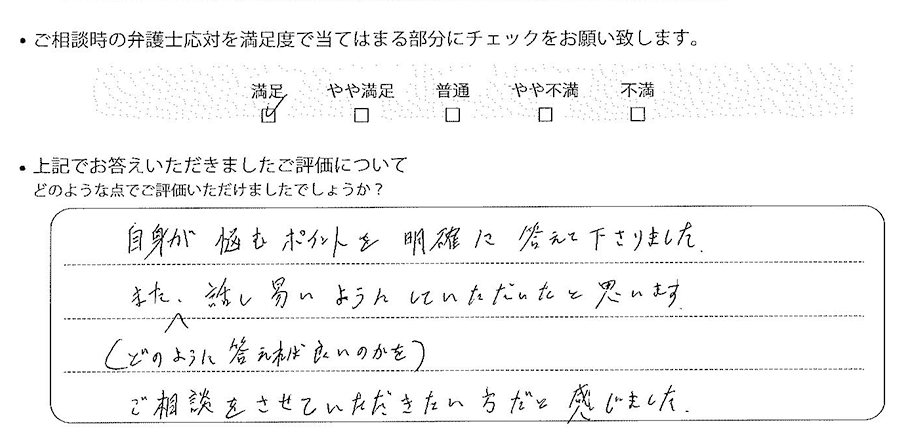 • ご相談時の弁護士応対を満足度で当てはまる部分にチェックをお願い致します。
満足 やや満足 普通 やや不満 不満
• 上記でお答えいただきましたご評価について
どのような点でご評価いただけましたでしょうか？
自身が悩むポイントを明確に答えて下さりました。
また、話し易いようにしていただいたと思います
(どのように答えれば良いのかを)
ご相談をさせていただきたい方だと感じました。